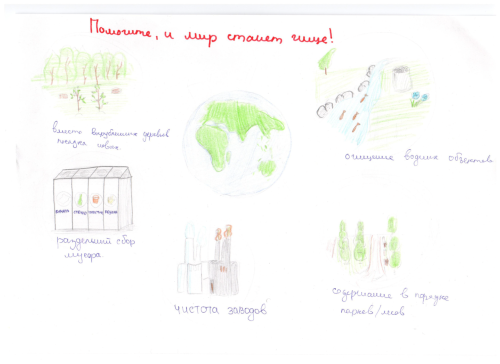 Помогите, и мир станет чище!
вместо вырубивших деревьев
посадка новых.
очищение водных объектов
раздельный сбор
мусора
чистота заводов
содержание в порядке
парков/лесов